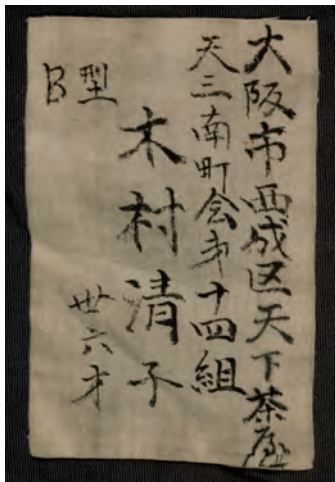 大阪市西成区天下茶屋
天三南町会第十四組
木村清子
B型
廿六才